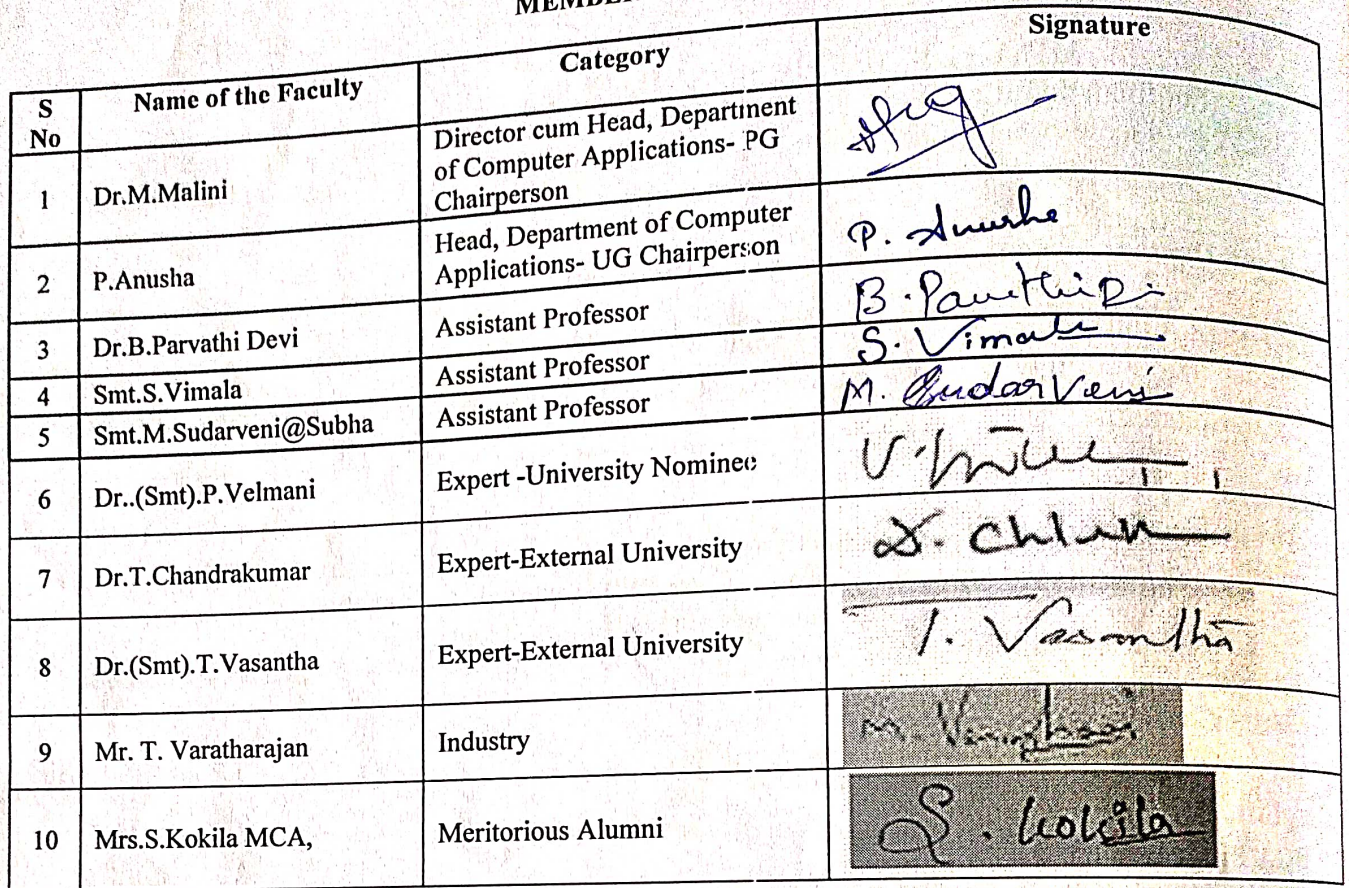 Signature
Category
Name of the Faculty
S
No
Director cum Head, Department
of Computer Applications- PG
Chairperson
1 Dr.M.Malini
Head, Department of Computer
Applications- UG Chairperson
P. Anusha
2 P.Anusha
3 Dr.B.Parvathi Devi Assistant Professor
4 Smt.S.Vimala Assistant Professor S. Vimala
5 Smt.M.Sudarveni@Subha Assistant Professor M. Sudarveni
6 Dr..(Smt).P.Velmani Expert -University Nominee
7 Dr.T.Chandrakumar Expert-External University
8 Dr.(Smt).T.Vasantha Expert-External University T. Vasantha
9 Mr. T. Varatharajan Industry
10 Mrs.S.Kokila MCA, Meritorious Alumni S. Kokila